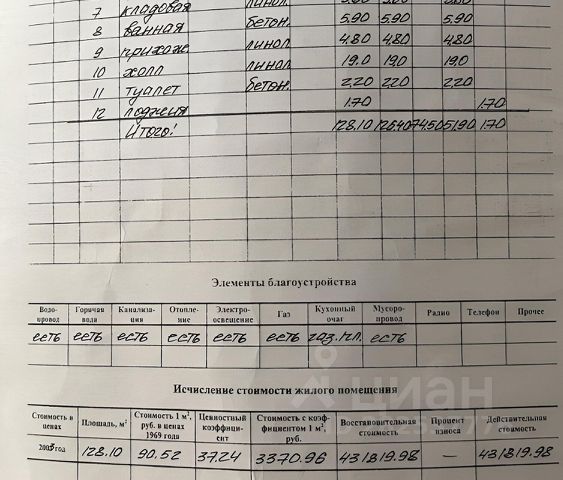 7 кладовая линол.
8 ванная бетон. 5.90 5.90 5.90
9 прихож. линол. 4.80 4.80 4.80
10 холл линол. 19.0 19.0 19.0
11 туалет бетон. 2.20 2.20 2.20
12 лоджия 1.70 1.70
Итого: 128.10 126.40 74.50 51.90 1.70
Элементы благоустройства
Водо-провод Горячая вода Канализа-ция Отопле-ние Электро-освещение Газ Кухонный очаг Мусоро-провод Радио Телефон Прочее
есть есть есть есть есть есть газ.пл. есть
Исчисление стоимости жилого помещения
Стоимость в ценах Площадь, м² Стоимость 1 м², руб. в ценах 1969 года Ценностный коэффици-ент Стоимость с коэф-фициентом 1 м², руб. Восстановительная стоимость Процент износа Действительная стоимость
2005 год 128.10 90.52 37.24 3370.96 431819.98 — 431819.98
циан